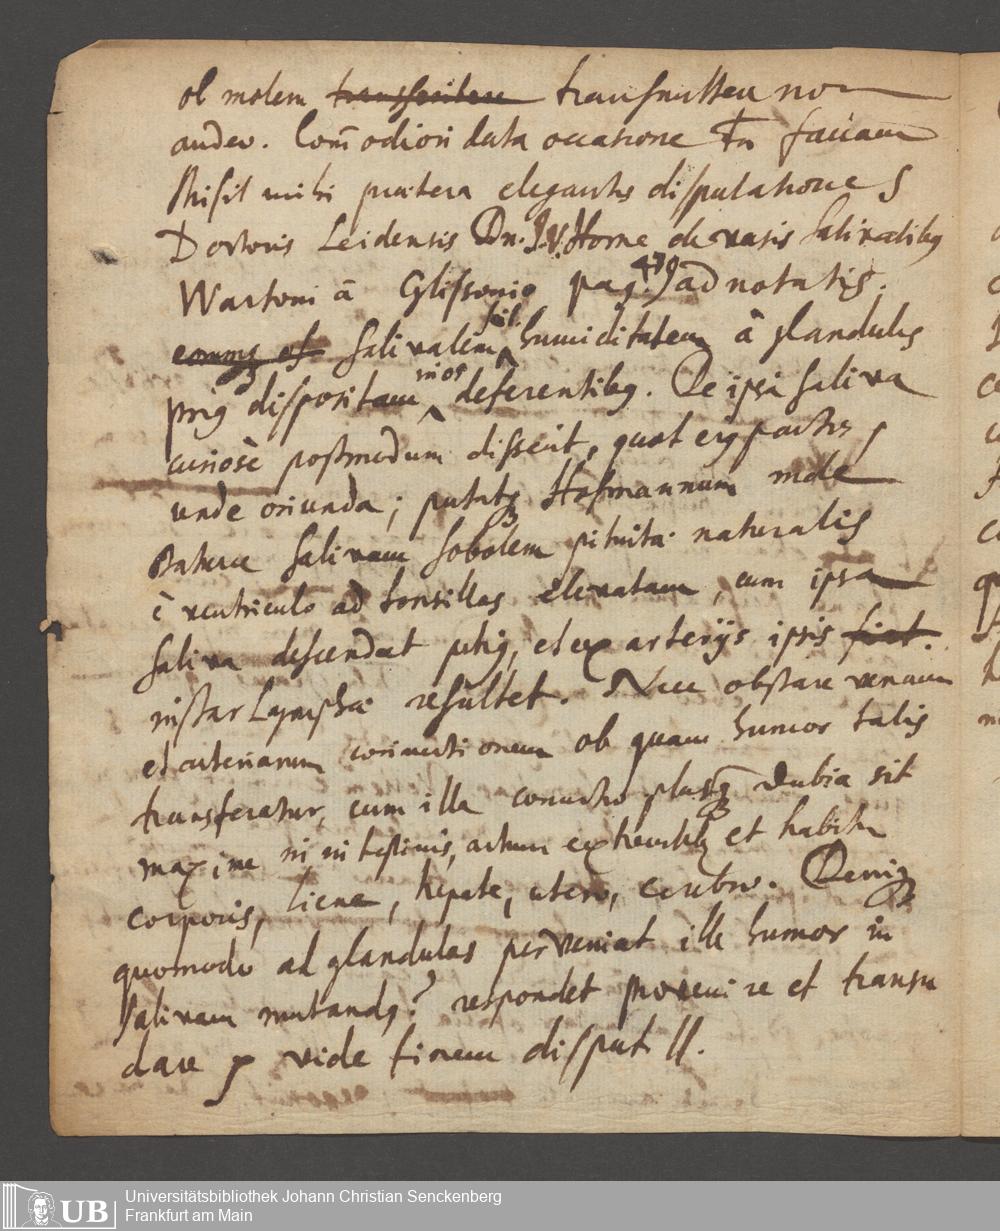 ob molem transmittere transmittere non
audeo. Com̄odiori data occasione tn̄ faciam
Misit mihi præterea elegantes disputationes
Doctoris Leidensis Dn. J. V. Horne de vasis salivalibq
Wartoni â Glissonio pag. 479 adnotatis.
salivalem scil. humiditatem â glandulis
priq dispositam in os deferentibq. De ipsa saliva
curiosè postmodum disserit, quot eiq partes,
unde oriunda; putatq Hofmannum male
statuere salivam sobolem pituitæ naturalis
è ventriculo ad tonsillas elevatam, cum ipsa
saliva descendat potiq, et ex arterijs ipsis fiat.
instar Lymphæ resultet. Nec obstare venarum
et arteriarum connectionem ob quam humor talis
transferatur, cum illa connectio plusq dubia sit
maxime in intestinis, artuum extremitibq et habitu
corporis, liene, hepate, utero, cerebro. Deniq
quomodo ad glandulas perveniat ille humor in
salivam mutandq? respondet provenire et transu
dare p vide finem disput. II.
Universitätsbibliothek Johann Christian Senckenberg
Frankfurt am Main
UB